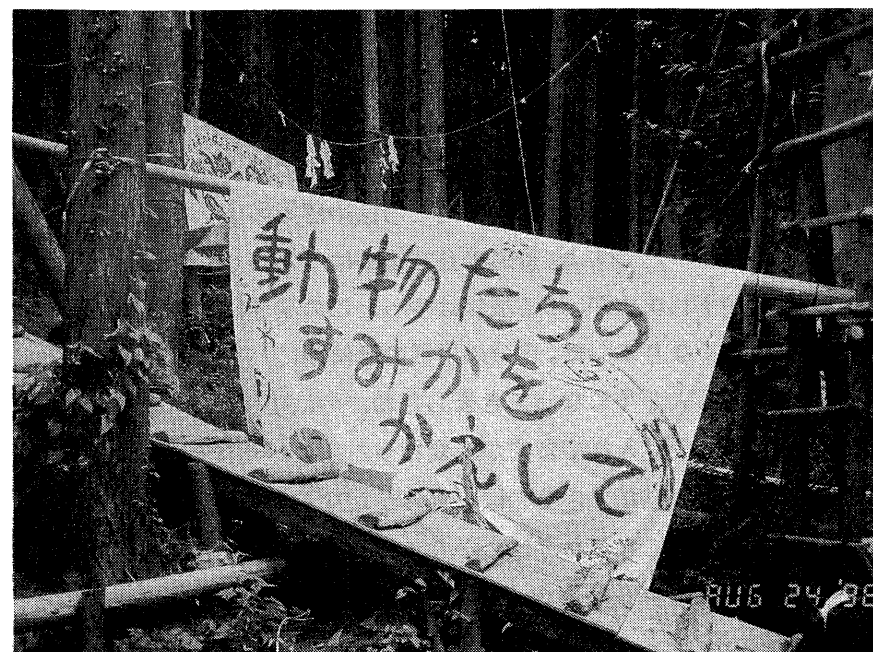 動物たちの
すみかを
かえして
AUG 24 '98